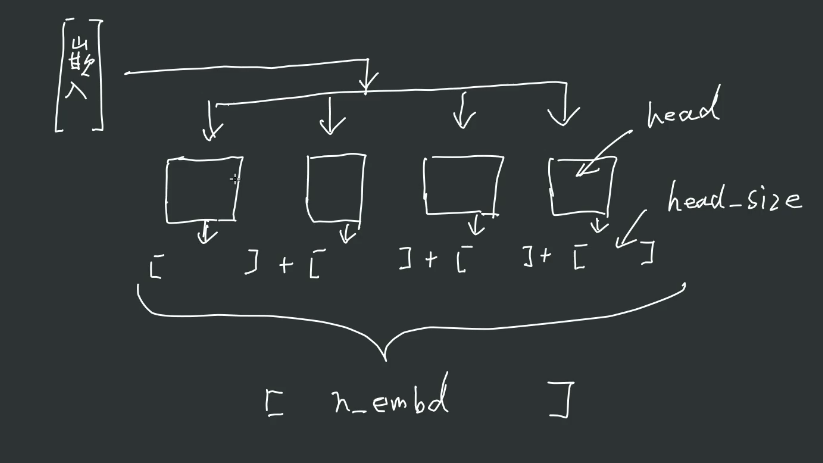 嵌入
head
head_size
[ ] + [ ] + [ ] + [ ]
[ n_embd ]